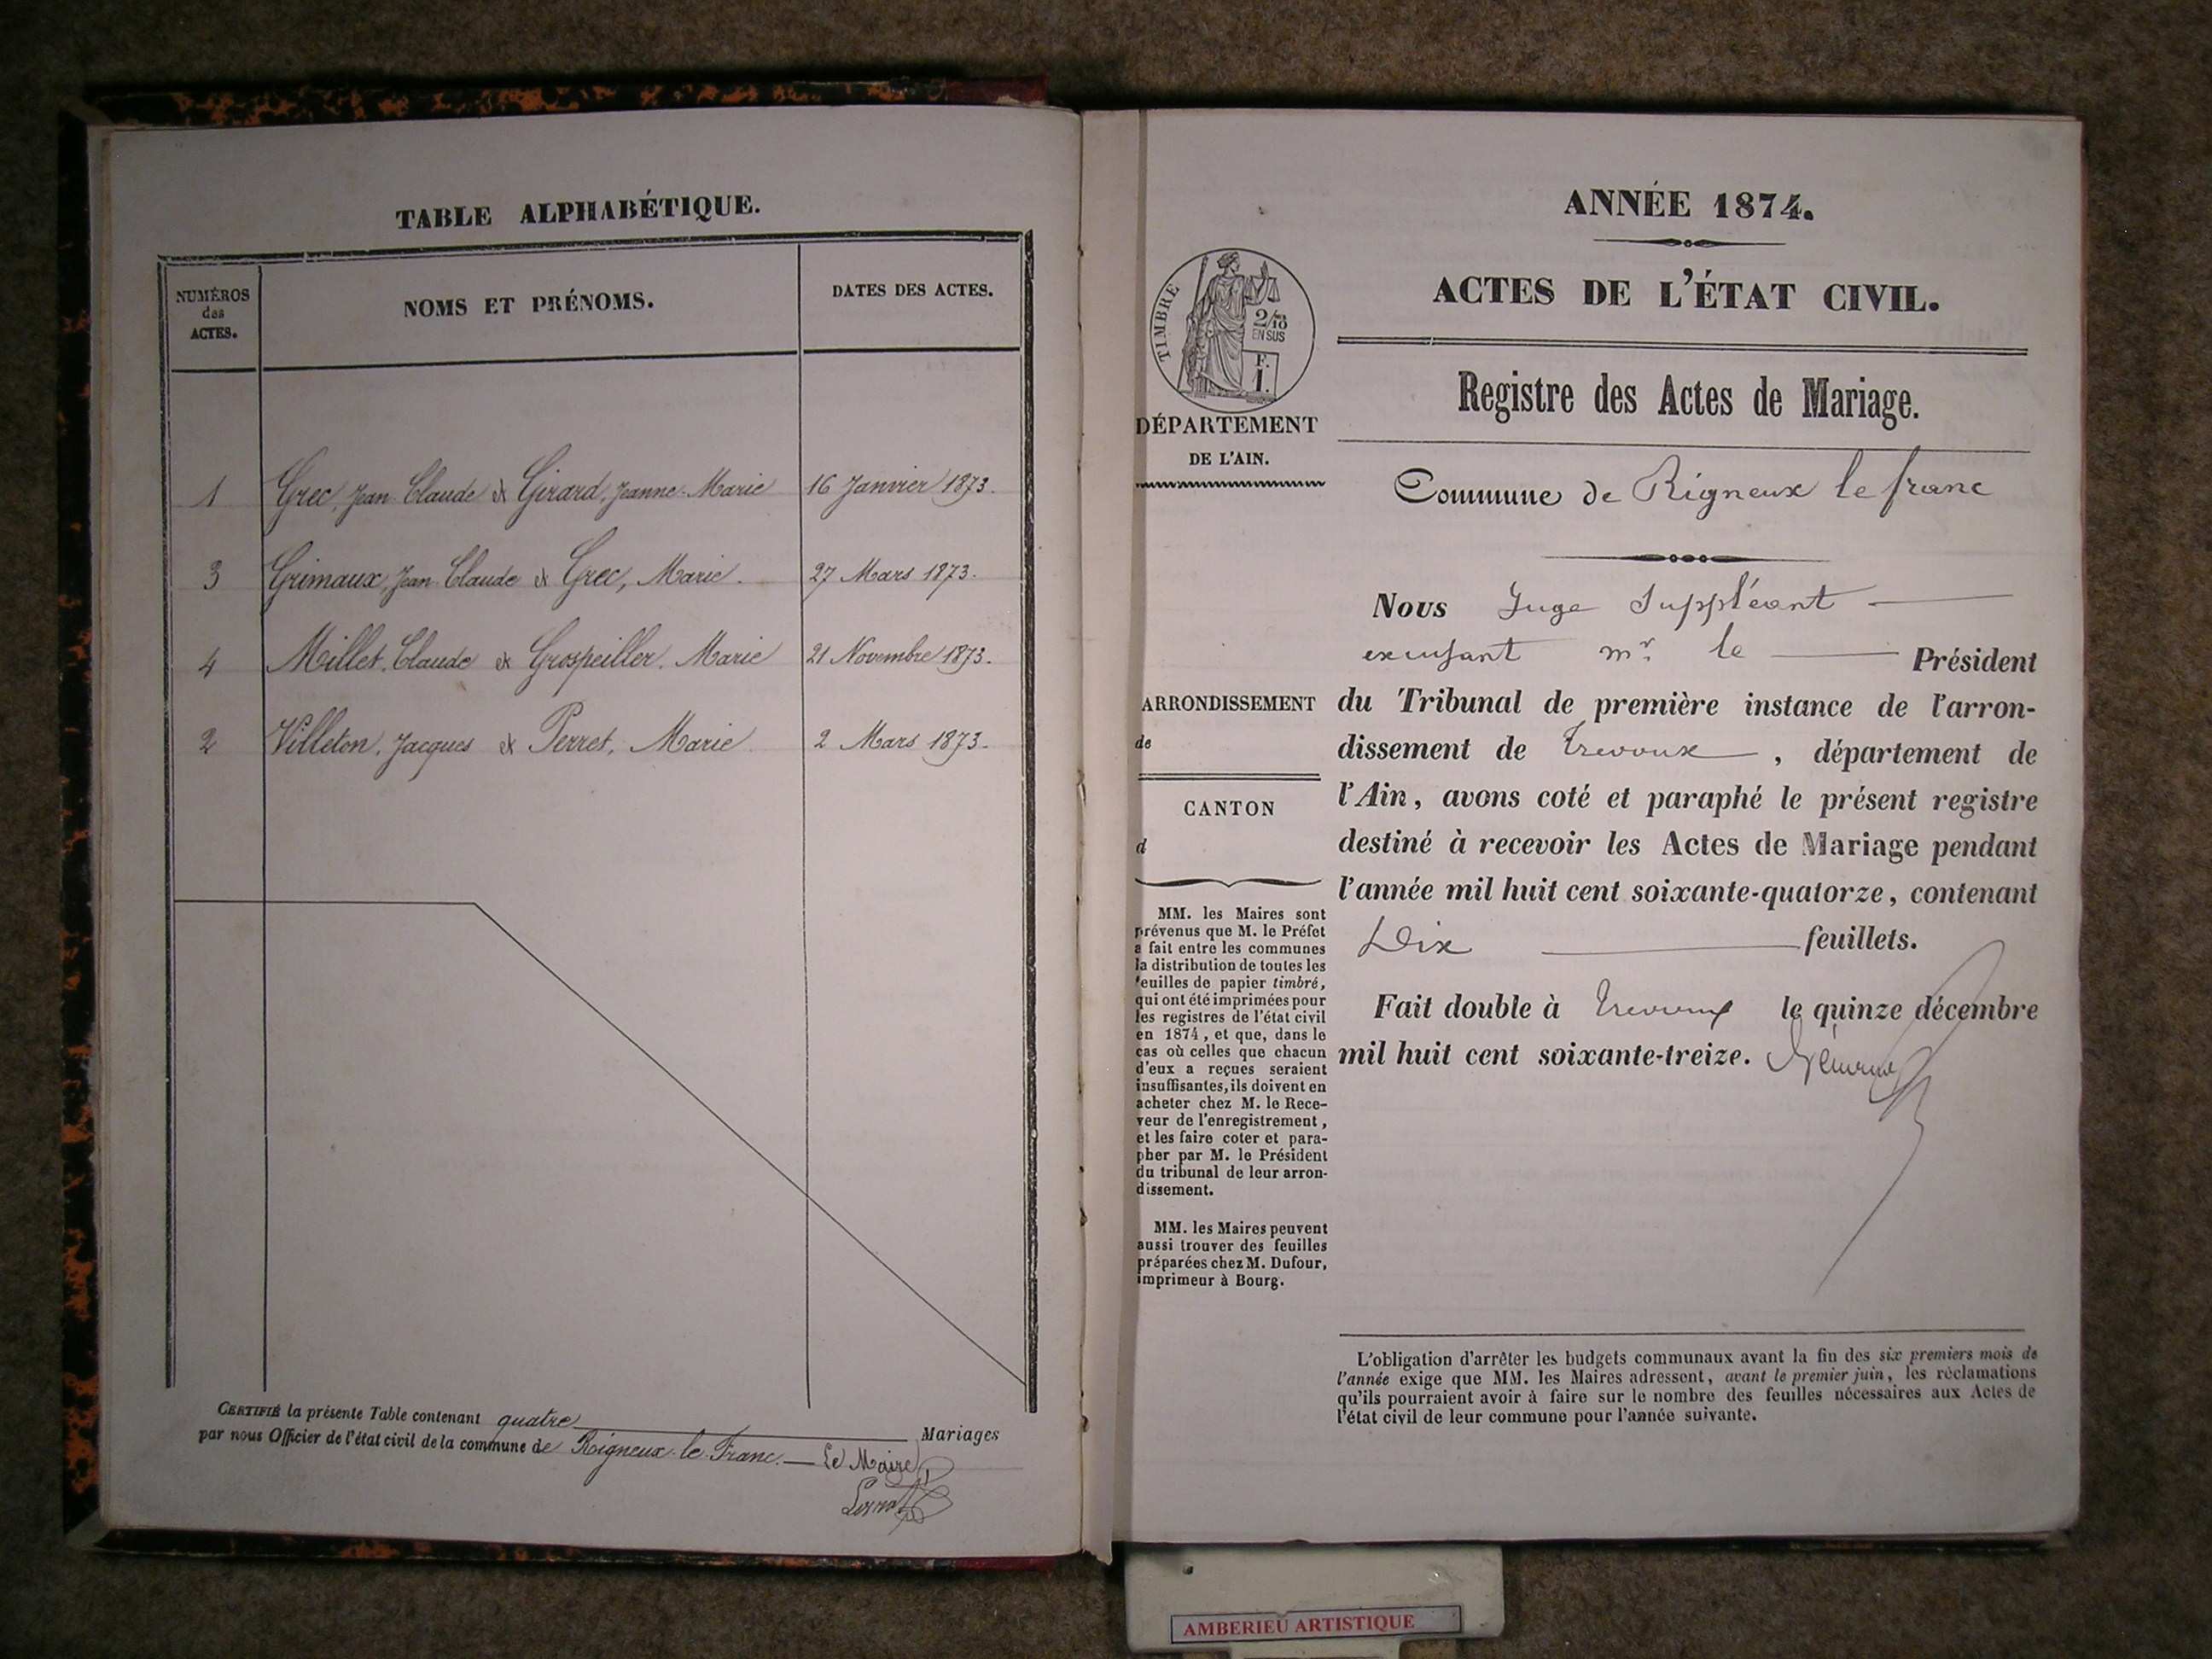 TABLE ALPHABÉTIQUE.
NUMÉROS
des
ACTES.
NOMS ET PRÉNOMS.
DATES DES ACTES.
1 Grec, Jean Claude et Girard, Jeanne-Marie 16 Janvier 1873.
3 Grimaux, Jean Claude et Grec, Marie. 27 Mars 1873.
4 Millet, Claude et Grospeiller, Marie 21 Novembre 1873.
2 Villeton, Jacques et Perret, Marie 2 Mars 1873.
CERTIFIÉ la présente Table contenant quatre Mariages
par nous Officier de l'état civil de la commune de Rigneux-le-Franc. Le Maire
ANNÉE 1874.
ACTES DE L'ÉTAT CIVIL.
Registre des Actes de Mariage.
TIMBRE
2/10
EN SUS
F.
1.
DÉPARTEMENT
DE L'AIN.
Commune de Rigneux le franc
Nous Juge Suppléant
mr. le Président
ARRONDISSEMENT
de
du Tribunal de première instance de l'arron-
dissement de Trevoux, département de
l'Ain, avons coté et paraphé le présent registre
destiné à recevoir les Actes de Mariage pendant
l'année mil huit cent soixante-quatorze, contenant
Dix feuillets.
Fait double à Trevoux le quinze décembre
mil huit cent soixante-treize.
CANTON
d
MM. les Maires sont
prévenus que M. le Préfet
a fait entre les communes
la distribution de toutes les
feuilles de papier timbré,
qui ont été imprimées pour
les registres de l'état civil
en 1874, et que, dans le
cas où celles que chacun
d'eux a reçues seraient
insuffisantes, ils doivent en
acheter chez M. le Rece-
veur de l'enregistrement,
et les faire coter et para-
pher par M. le Président
du tribunal de leur arron-
dissement.
MM. les Maires peuvent
aussi trouver des feuilles
préparées chez M. Dufour,
imprimeur à Bourg.
L'obligation d'arrêter les budgets communaux avant la fin des six premiers mois de
l'année exige que MM. les Maires adressent, avant le premier juin, les réclamations
qu'ils pourraient avoir à faire sur le nombre des feuilles nécessaires aux Actes de
l'état civil de leur commune pour l'année suivante.
AMBERIEU ARTISTIQUE